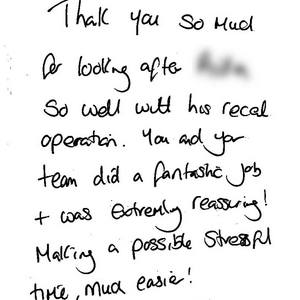 Thank you so much
for looking after
so well with his recent
operation. You and your
team did a fantastic job
+ was extremely reassuring!
Making a possible stressful
time, much easier!